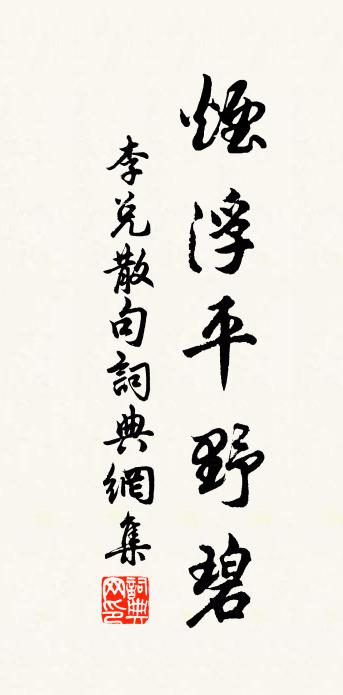 煙浮平野碧
李兌散句詞典網集
詞典网印